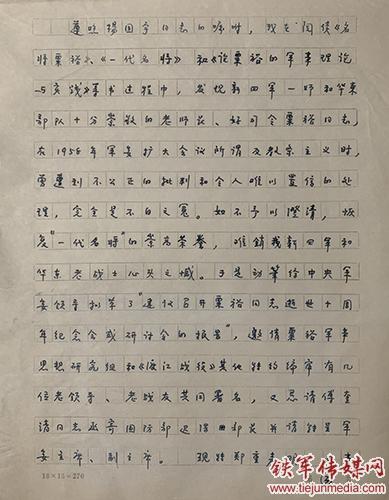 遵照杨国宇同志的嘱咐，我在阅读《名
将粟裕》、《一代名将》和《论粟裕的军事理论
与实践》等书过程中，发现新四军一师和华东
部队十分崇敬的老师长、好司令粟裕同志，
在1958年军委扩大会议所谓反教条主义时，
曾遭到不公正的批判和令人难以置信的处
理，完全是不白之冤。如不予以澄清，恢
复"一代名将"的崇高荣誉，难销我新四军和
华东老战士心头之憾。于是动笔给中央军
委领导拟第了"建议召开粟裕同志逝世十周
年纪念会或研讨会的报告"，邀请粟裕军事
思想研究组和《渡江战役》其他特约编审有几
位老领导、老战友共同署名，又恳请傅奎
清同志承寄国防部迟浩田部长并请转呈军
委主席、副主席。现特郑重
18×15=270
铁军传媒网
www.tiejunmedia.com